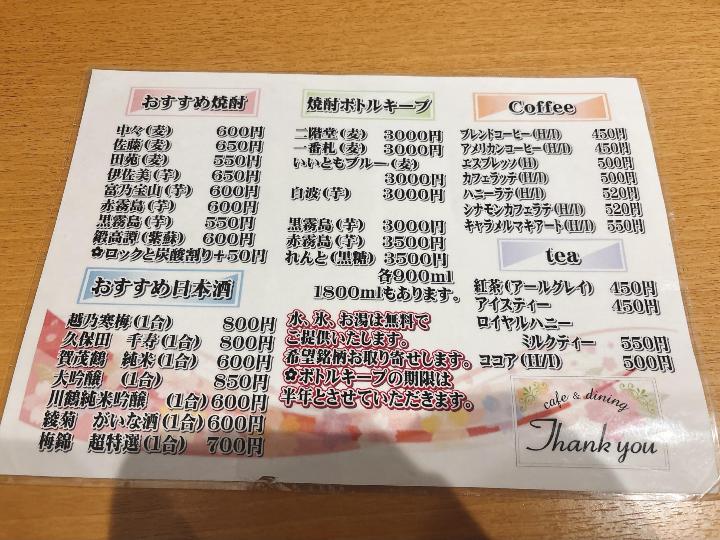 おすすめ焼酎
中々(麦) 600円
佐藤(麦) 650円
田苑(麦) 550円
伊佐美(芋) 650円
富乃宝山(芋) 600円
赤霧島(芋) 600円
黒霧島(芋) 550円
鍛高譚(紫蘇) 600円
✿ロックと炭酸割り+50円
おすすめ日本酒
越乃寒梅(1合) 800円
久保田 千寿(1合) 800円
賀茂鶴 純米(1合) 600円
大吟醸 (1合) 850円
川鶴純米吟醸 (1合) 600円
綾菊 がいな酒(1合) 600円
梅錦 超特選(1合) 700円
焼酎ボトルキープ
二階堂(麦) 3000円
一番札(麦) 3000円
いいともブルー(麦)
3000円
白波(芋) 3000円
黒霧島(芋) 3000円
赤霧島(芋) 3500円
れんと(黒糖) 3500円
各900ml
1800mlもあります。
水、氷、お湯は無料で
ご提供いたします。
希望銘柄お取り寄せします。
✿ボトルキープの期限は
半年とさせていただきます。
Coffee
ブレンドコーヒー(H/I) 450円
アメリカンコーヒー(H/I) 450円
エスプレッソ(H) 500円
カフェラッテ(H/I) 500円
ハニーラテ(H/I) 520円
シナモンカフェラテ(H/I) 520円
キャラメルマキアート(H/I) 550円
tea
紅茶(アールグレイ) 450円
アイスティー 450円
ロイヤルハニー
ミルクティー 550円
ココア(H/I) 500円
cafe & dining
Thank you